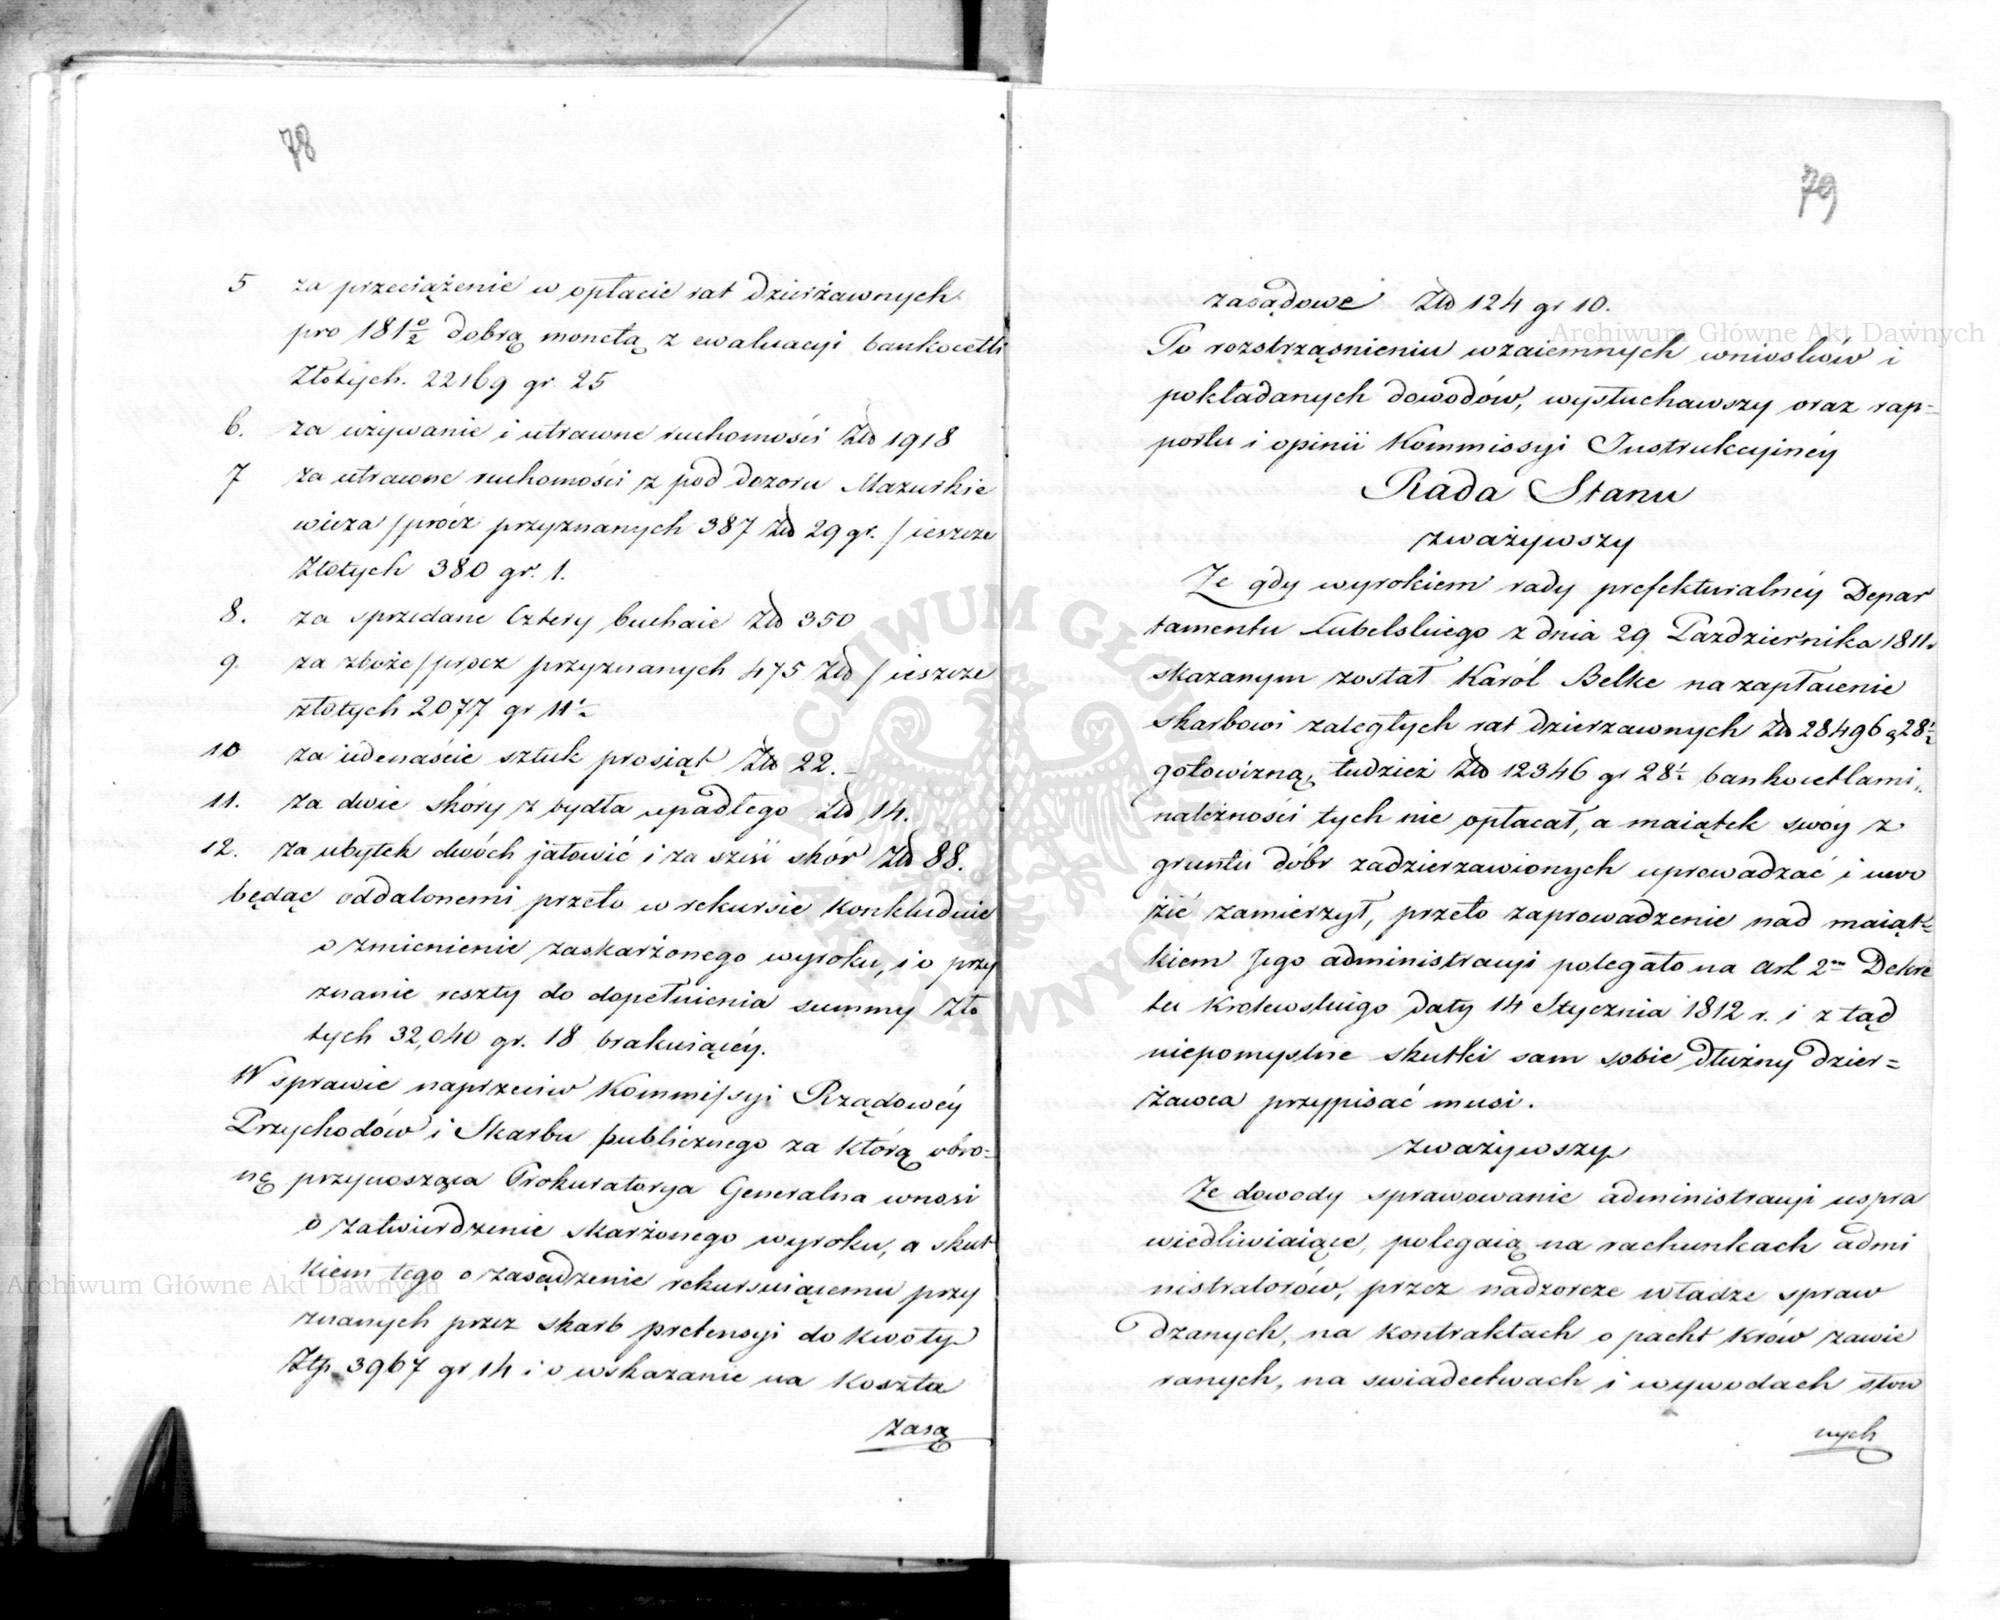 78
5 za przeciążenie w opłacie rat dzierżawnych
pro 181 0/2 dobrą monetą z ewaluacyi bankocetli
Złotych. 22169 gr. 25
6. za używanie i utracone ruchomości Złő 1918
7 za utracone ruchomości z pod dozoru Mazurkie
wicza /prócz przyznanych 387 Złő 29 gr. / ieszcze
Złotych 380 gr. 1.
8. za sprzedane Cztery buhaie Złő 350
9. za zboże /procz przyznanych 475 Złő / ieszcze
złotych 2077 gr 11½
10 za iedenaście sztuk prosiąt Złő 22.
11. za dwie skóry z bydła upadłego Złő 14.
12. za ubytek dwóch jałowić i za sześć skór Złő 88.
będąc oddalonemi przeto w rekursie konkluduie
o zmienienie zaskarżonego wyroku, i o przy
znanie reszty do dopełnienia summy Zło
tych 32,040 gr. 18 brakuiącéy.
W sprawie naprzeciw Kommissyi Rządowéy
Przychodów i Skarbu publicznego za którą obro=
nę przynosząca Prokuratorya Generalna wnosi
o zatwierdzenie skarżonego wyroku, a skut
kiem tego o zasądzenie rekursuiącemu przy
znanych przez skarb pretensyi do kwoty
Złp. 3967 gr 14 i o wskazanie na koszta
zasą
79
zasądowe Złő 124 gr 10.
Po rozstrząśnieniu wzaiemnych wniosków i
pokładanych dowodów, wysłuchawszy oraz rap=
portu i opinii Kommissyi Instrukcyinéy
Rada Stanu
zważywszy
Że gdy wyrokiem rady prefekturalnéy Depar
tamentu Lubelskiego z dnia 29 Pazdziernika 1811 r
skazanym został Karól Belke na zapłacenie
skarbowi zaległych rat dzierzawnych Złő 28496 g 28½
gotowizną, tudzież Złő 12346 gr 28½ bankocetlami,
należności tych nie opłacał, a maiątek swóy z
gruntu dóbr zadzierzawionych uprowadzać i uwo
zić zamierzył, przeto zaprowadzenie nad maiąt=
kiem Jego administracyi polegało na art 2m Dekre
tu Krolewskiego daty 14 Stycznia 1812 r. i z tąd
niepomyslne skutki sam sobie dłużny dzier=
żawca przypisać musi.
zważywszy
Że dowody sprawowanie administracyi uspra
wiedliwiaiące, polegaią na rachunkach admi
nistratorów, przez nadzorcze władze spraw
dzanych, na kontraktach o pacht krów zawie
ranych, na swiadectwach i wywodach słow
nych
Archiwum Główne Akt Dawnych
Archiwum Główne Akt Dawnych
ARCHIWUM GŁÓWNE AKT DAWNYCH